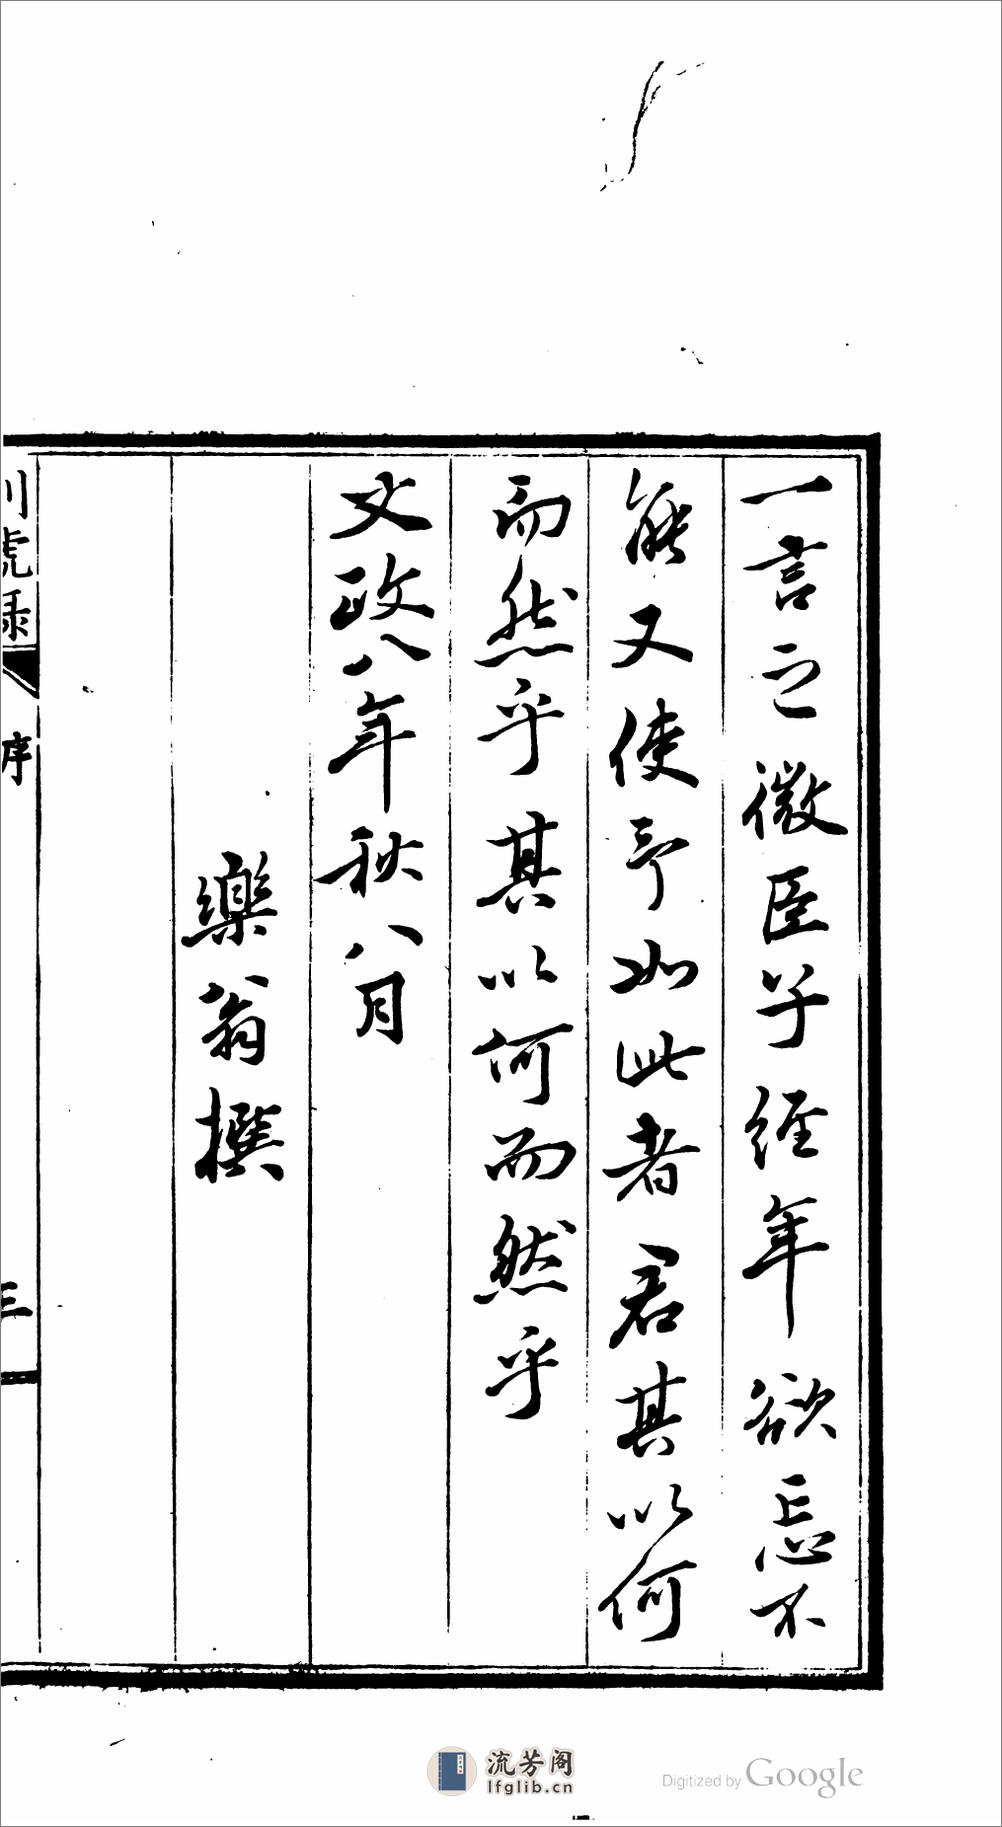 一言之微臣子經年欲忘不
能又使予如此者君其以何
而然乎其以何而然乎
文政八年秋八月
樂翁撰
序
三
流芳阁
lfglib.cn
Digitized by Google